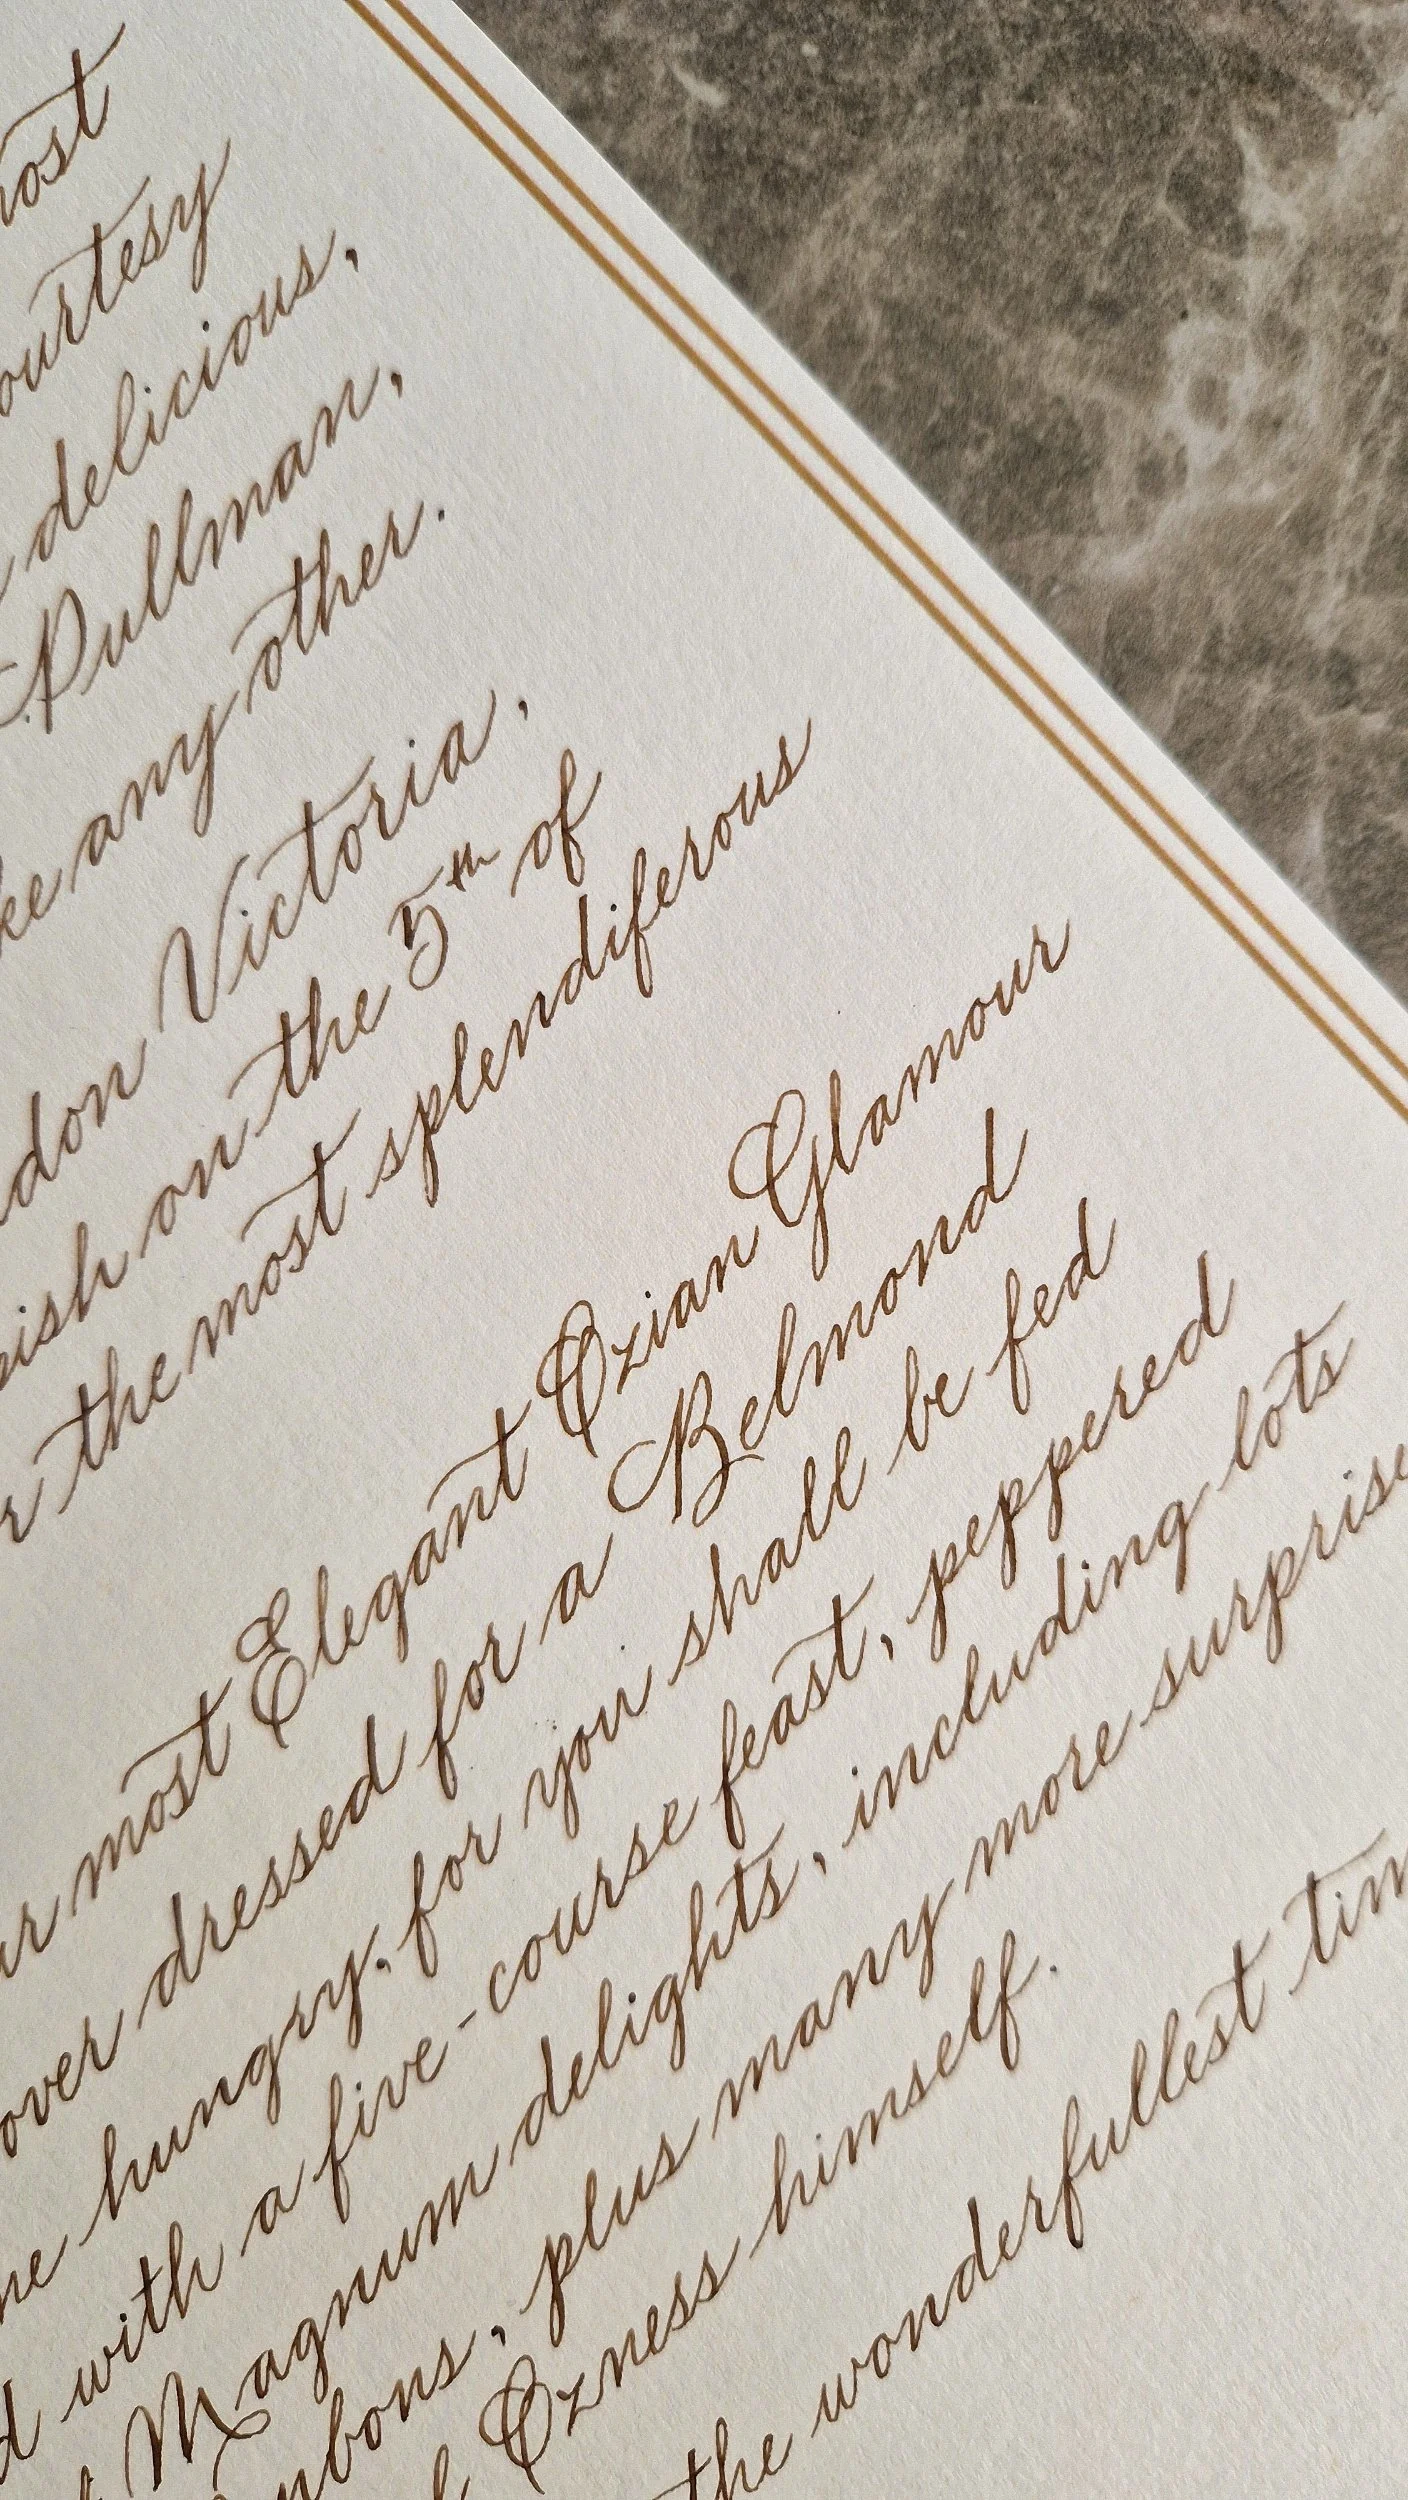 ost
ourtesy
delicious,
Pullman,
ke any other.
don Victoria,
ish on the 5th of
r the most splendiferous
ur most Elegant Ozian Glamour
over dressed for a Belmond
me hungry, for you shall be fed
d with a five-course feast, peppered
Magnum delights, including lots
nbons, plus many more surprise
Ozness himself.
the wonderfullest tim